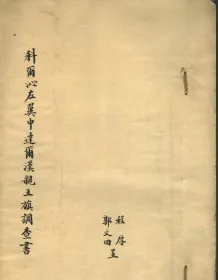 科爾沁左翼中達爾漢親王旗調查書
程厚
郭文田 呈